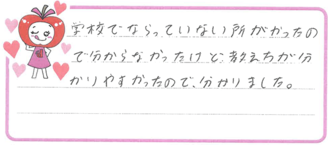 学校でならっていない所がかったの
で分からなかったけど、教えちが分
かりやすかったので、分かりました。